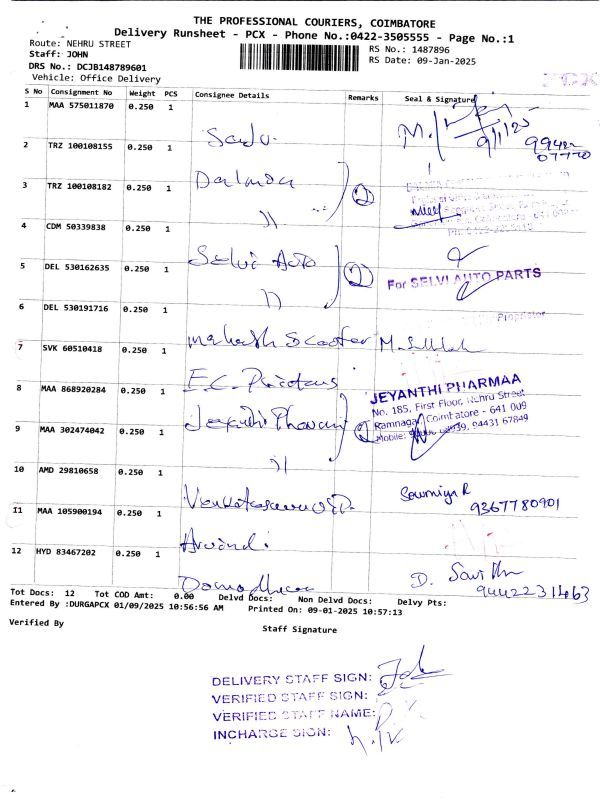 THE PROFESSIONAL COURIERS, COIMBATORE
Delivery Runsheet - PCX - Phone No.:0422-3505555 - Page No.:1
Route: NEHRU STREET
RS No.: 1487896
Staff: JOHN
RS Date: 09-Jan-2025
DRS No.: DCJB148789601
Vehicle: Office Delivery
PCX
S No Consignment No Weight PCS Consignee Details Remarks Seal & Signature
1 MAA 575011870 0.250 1
9/1/25 99422 07770
2 TRZ 100108155 0.250 1
3 TRZ 100108182 0.250 1 Dalmia
" 2
4 CDM 50339838 0.250 1
5 DEL 530162635 0.250 1 Selvi Auto 2 For SELVI AUTO PARTS
"
6 DEL 530191716 0.250 1 Proprietor
7 SVK 60510418 0.250 1 Mahesh Scooter
8 MAA 868920284 0.250 1 E.C. Printers
JEYANTHI PHARMAA
No. 185, First Floor, Nehru Street
Ramnagar, Coimbatore - 641 009
9 MAA 302474042 0.250 1 Jeyanthi Pharma 2 Mobile: 04439, 94431 67849
"
10 AMD 29810658 0.250 1
Sowmiya R
9367780901
11 MAA 105900194 0.250 1
Arvind
12 HYD 83467202 0.250 1
D. Savitha
9442231463
Tot Docs: 12 Tot COD Amt: 0.00 Delvd Docs: Non Delvd Docs: Delvy Pts:
Entered By :DURGAPCX 01/09/2025 10:56:56 AM Printed On: 09-01-2025 10:57:13
Verified By
Staff Signature
DELIVERY STAFF SIGN:
VERIFIED STAFF SIGN:
VERIFIED STAFF NAME:
INCHARGE SIGN: